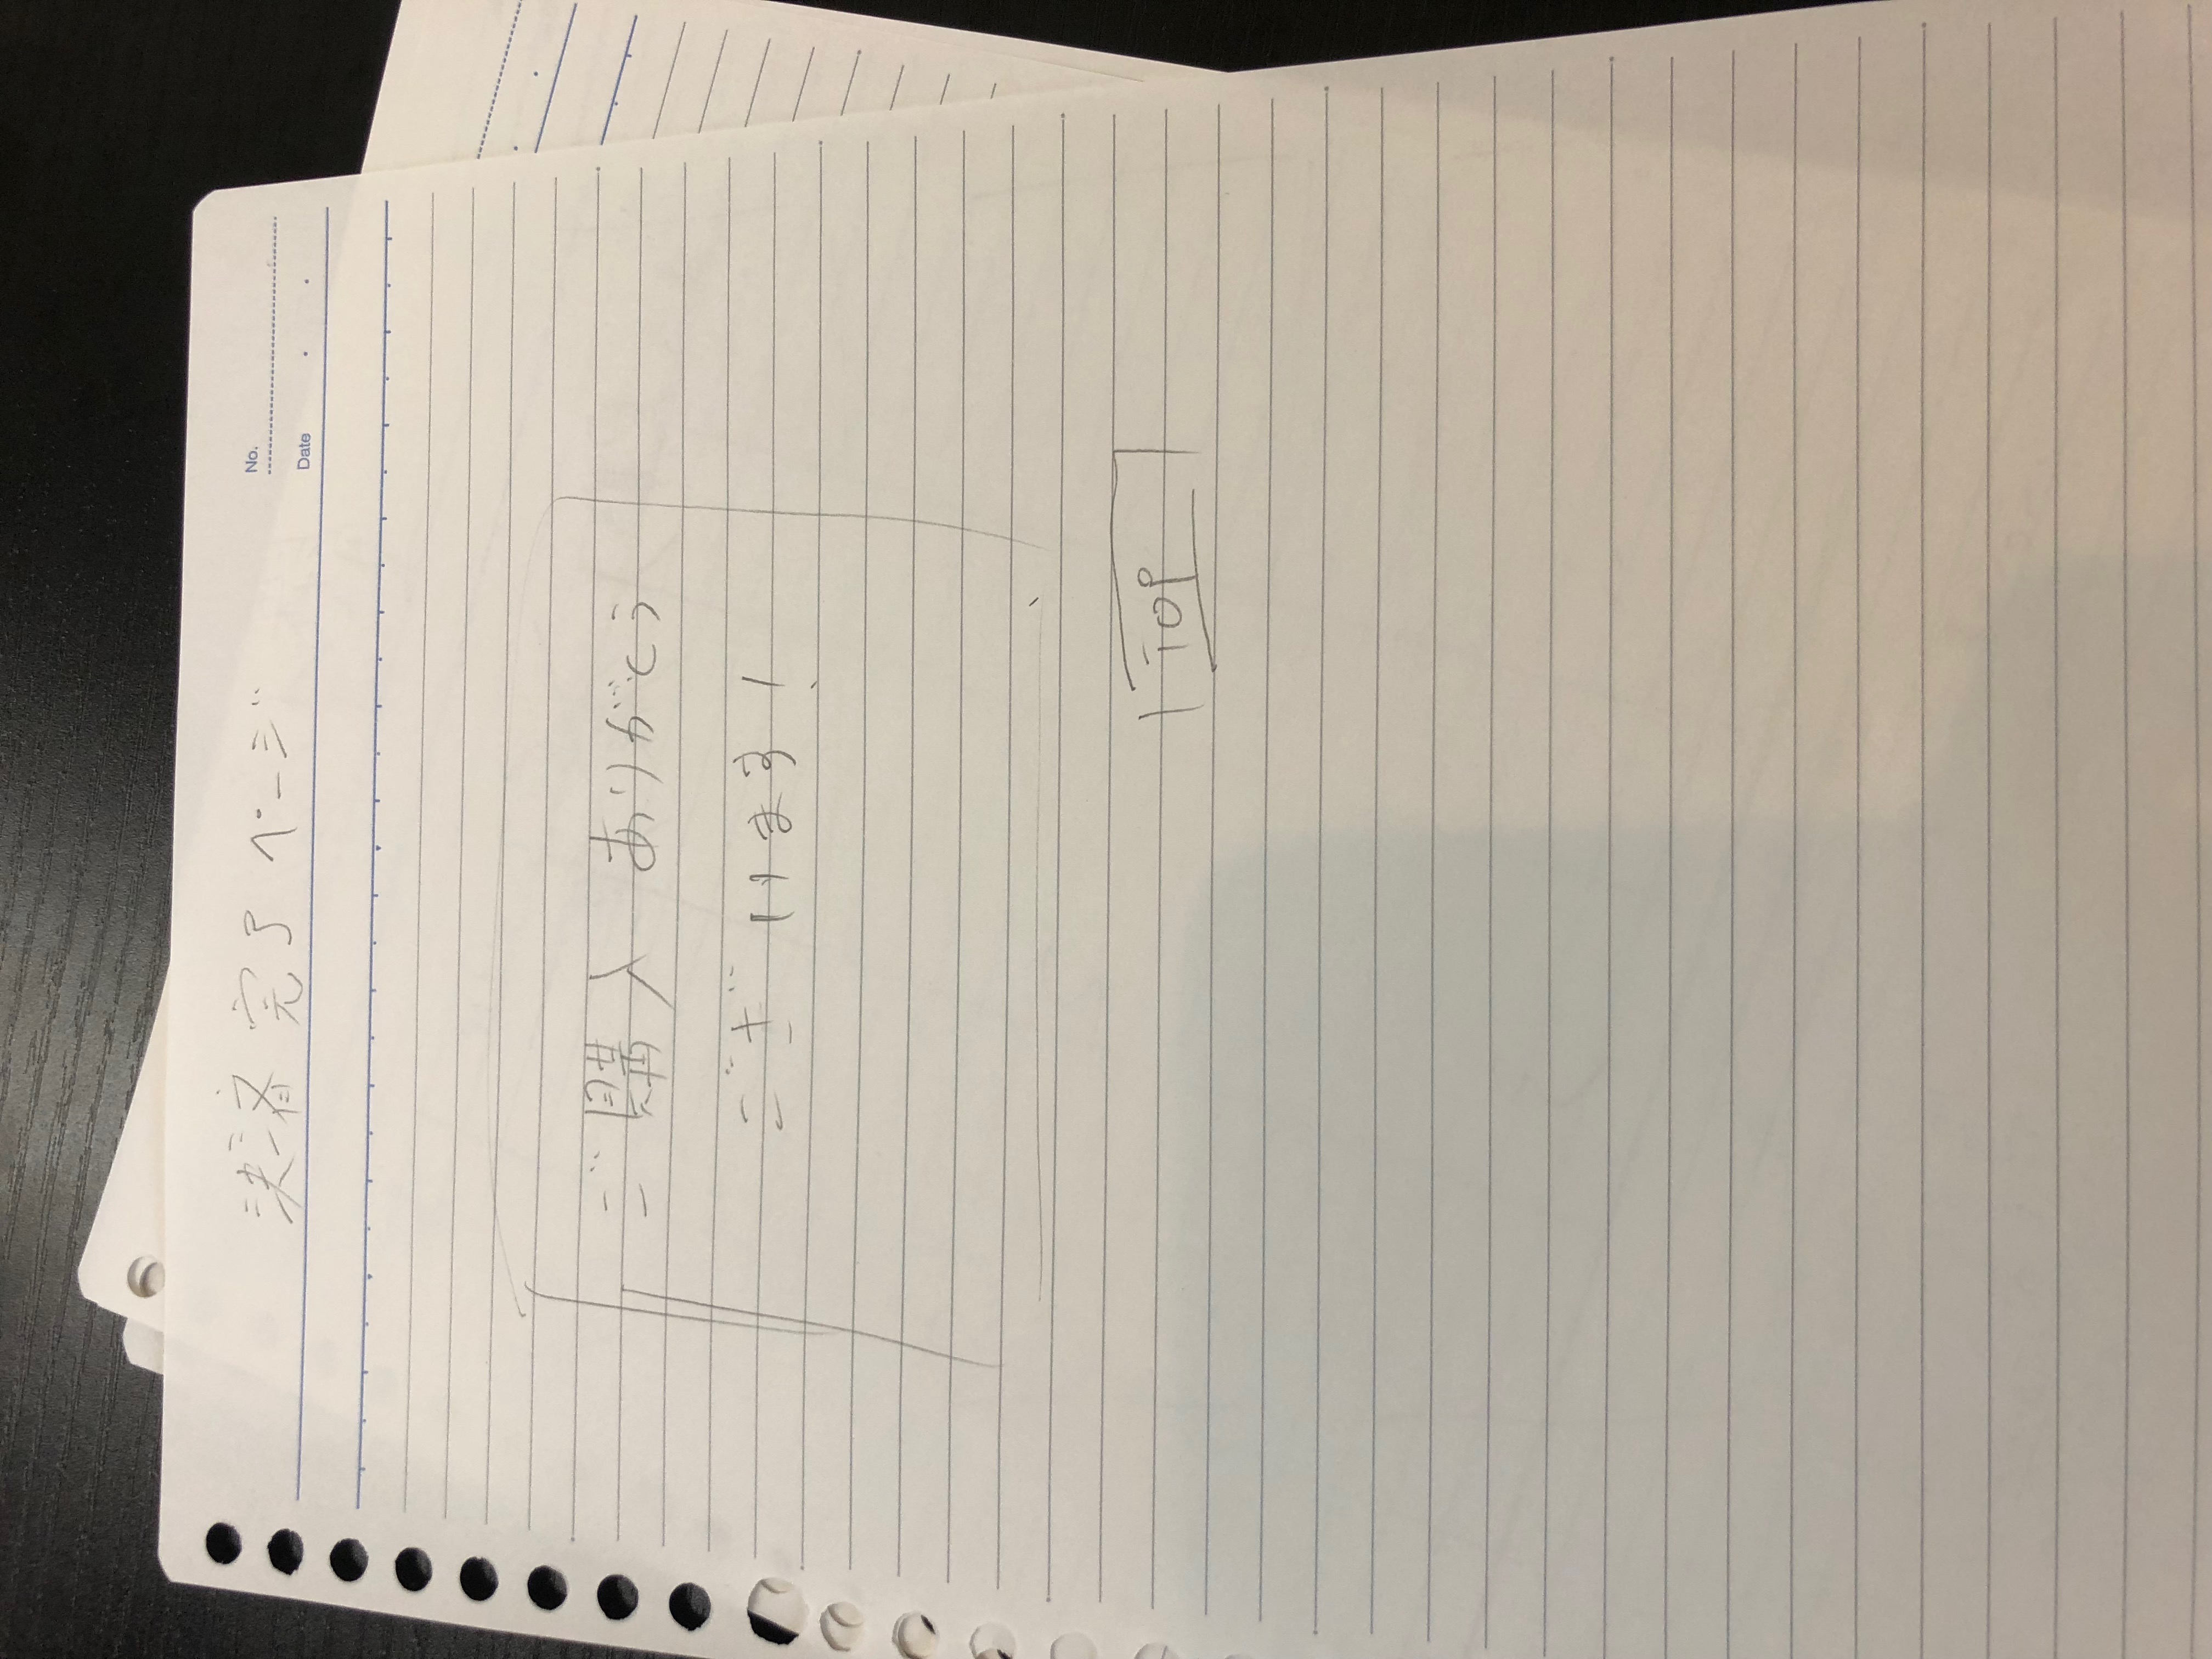 決済完了ページ
No.
Date
ご購入 ありがとう
ございます!
TOP